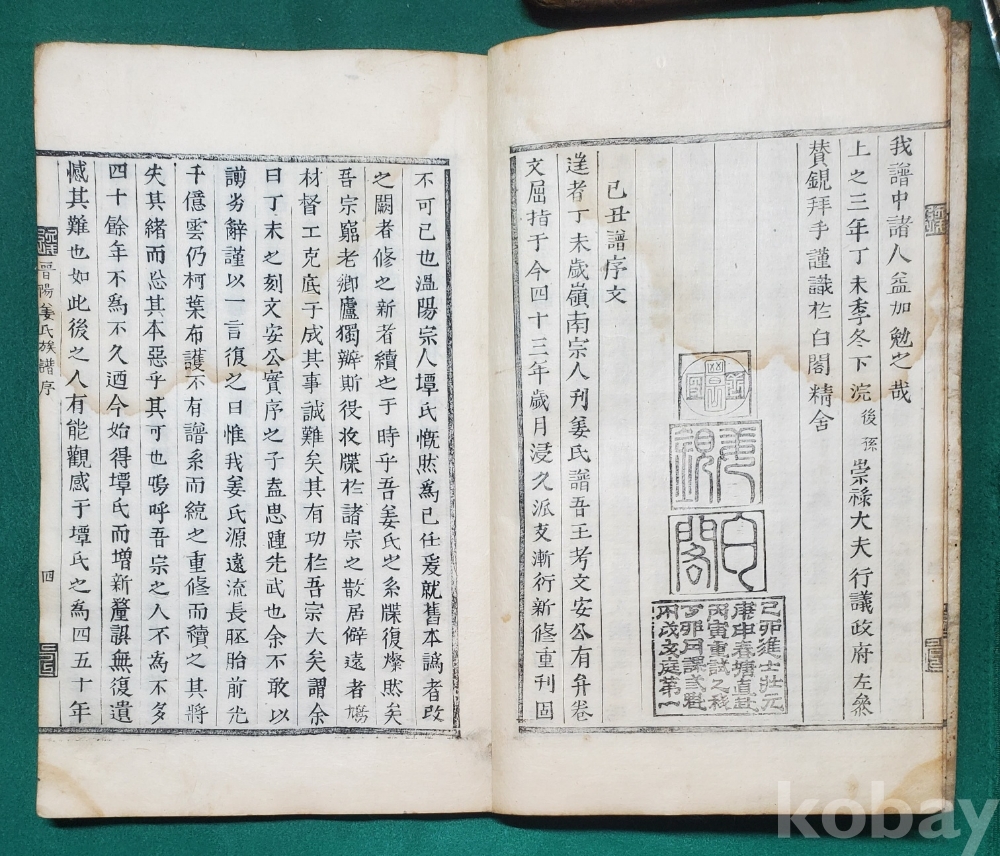 我譜中諸人益加勉之哉
上之三年丁未季冬下浣後孫崇祿大夫行議政府左參
贊鋧拜手謹識於白閣精舍
姜鋧
白閣
己卯進士壯元
庚申春塘直赴
丙寅重試之魁
丁卯月課貳魁
丙戌文庭第一
己丑譜序文
逆者丁未歲嶺南宗人刊姜氏譜吾王考文安公有弁卷
文屈指于今四十三年歲月浸久派支漸衍新修重刊固
不可已也溫陽宗人墰氏慨然爲己任爰就舊本譌者改
之闕者修之新者續之于時乎吾姜氏之系牒復燦然矣
吾宗竆老鄉廬獨辦斯役收牒於諸宗之散居僻遠者鳩
材督工克底于成其事誠難矣其有功於吾宗大矣謂余
曰丁未之刻文安公實序之子盍思踵先武也余不敢以
譾劣辭謹以一言復之曰惟我姜氏源遠流長胚胎前光
千億雲仍柯葉布護不有譜系而統之重修而續之其將
失其緒而忘其本惡乎其可也嗚呼吾宗之人不爲不多
四十餘年不爲不久迺今始得墰氏而增新釐誤無復遺
憾其難也如此後之人有能觀感于墰氏之爲四五十年
晉陽姜氏族譜序
四
kobay